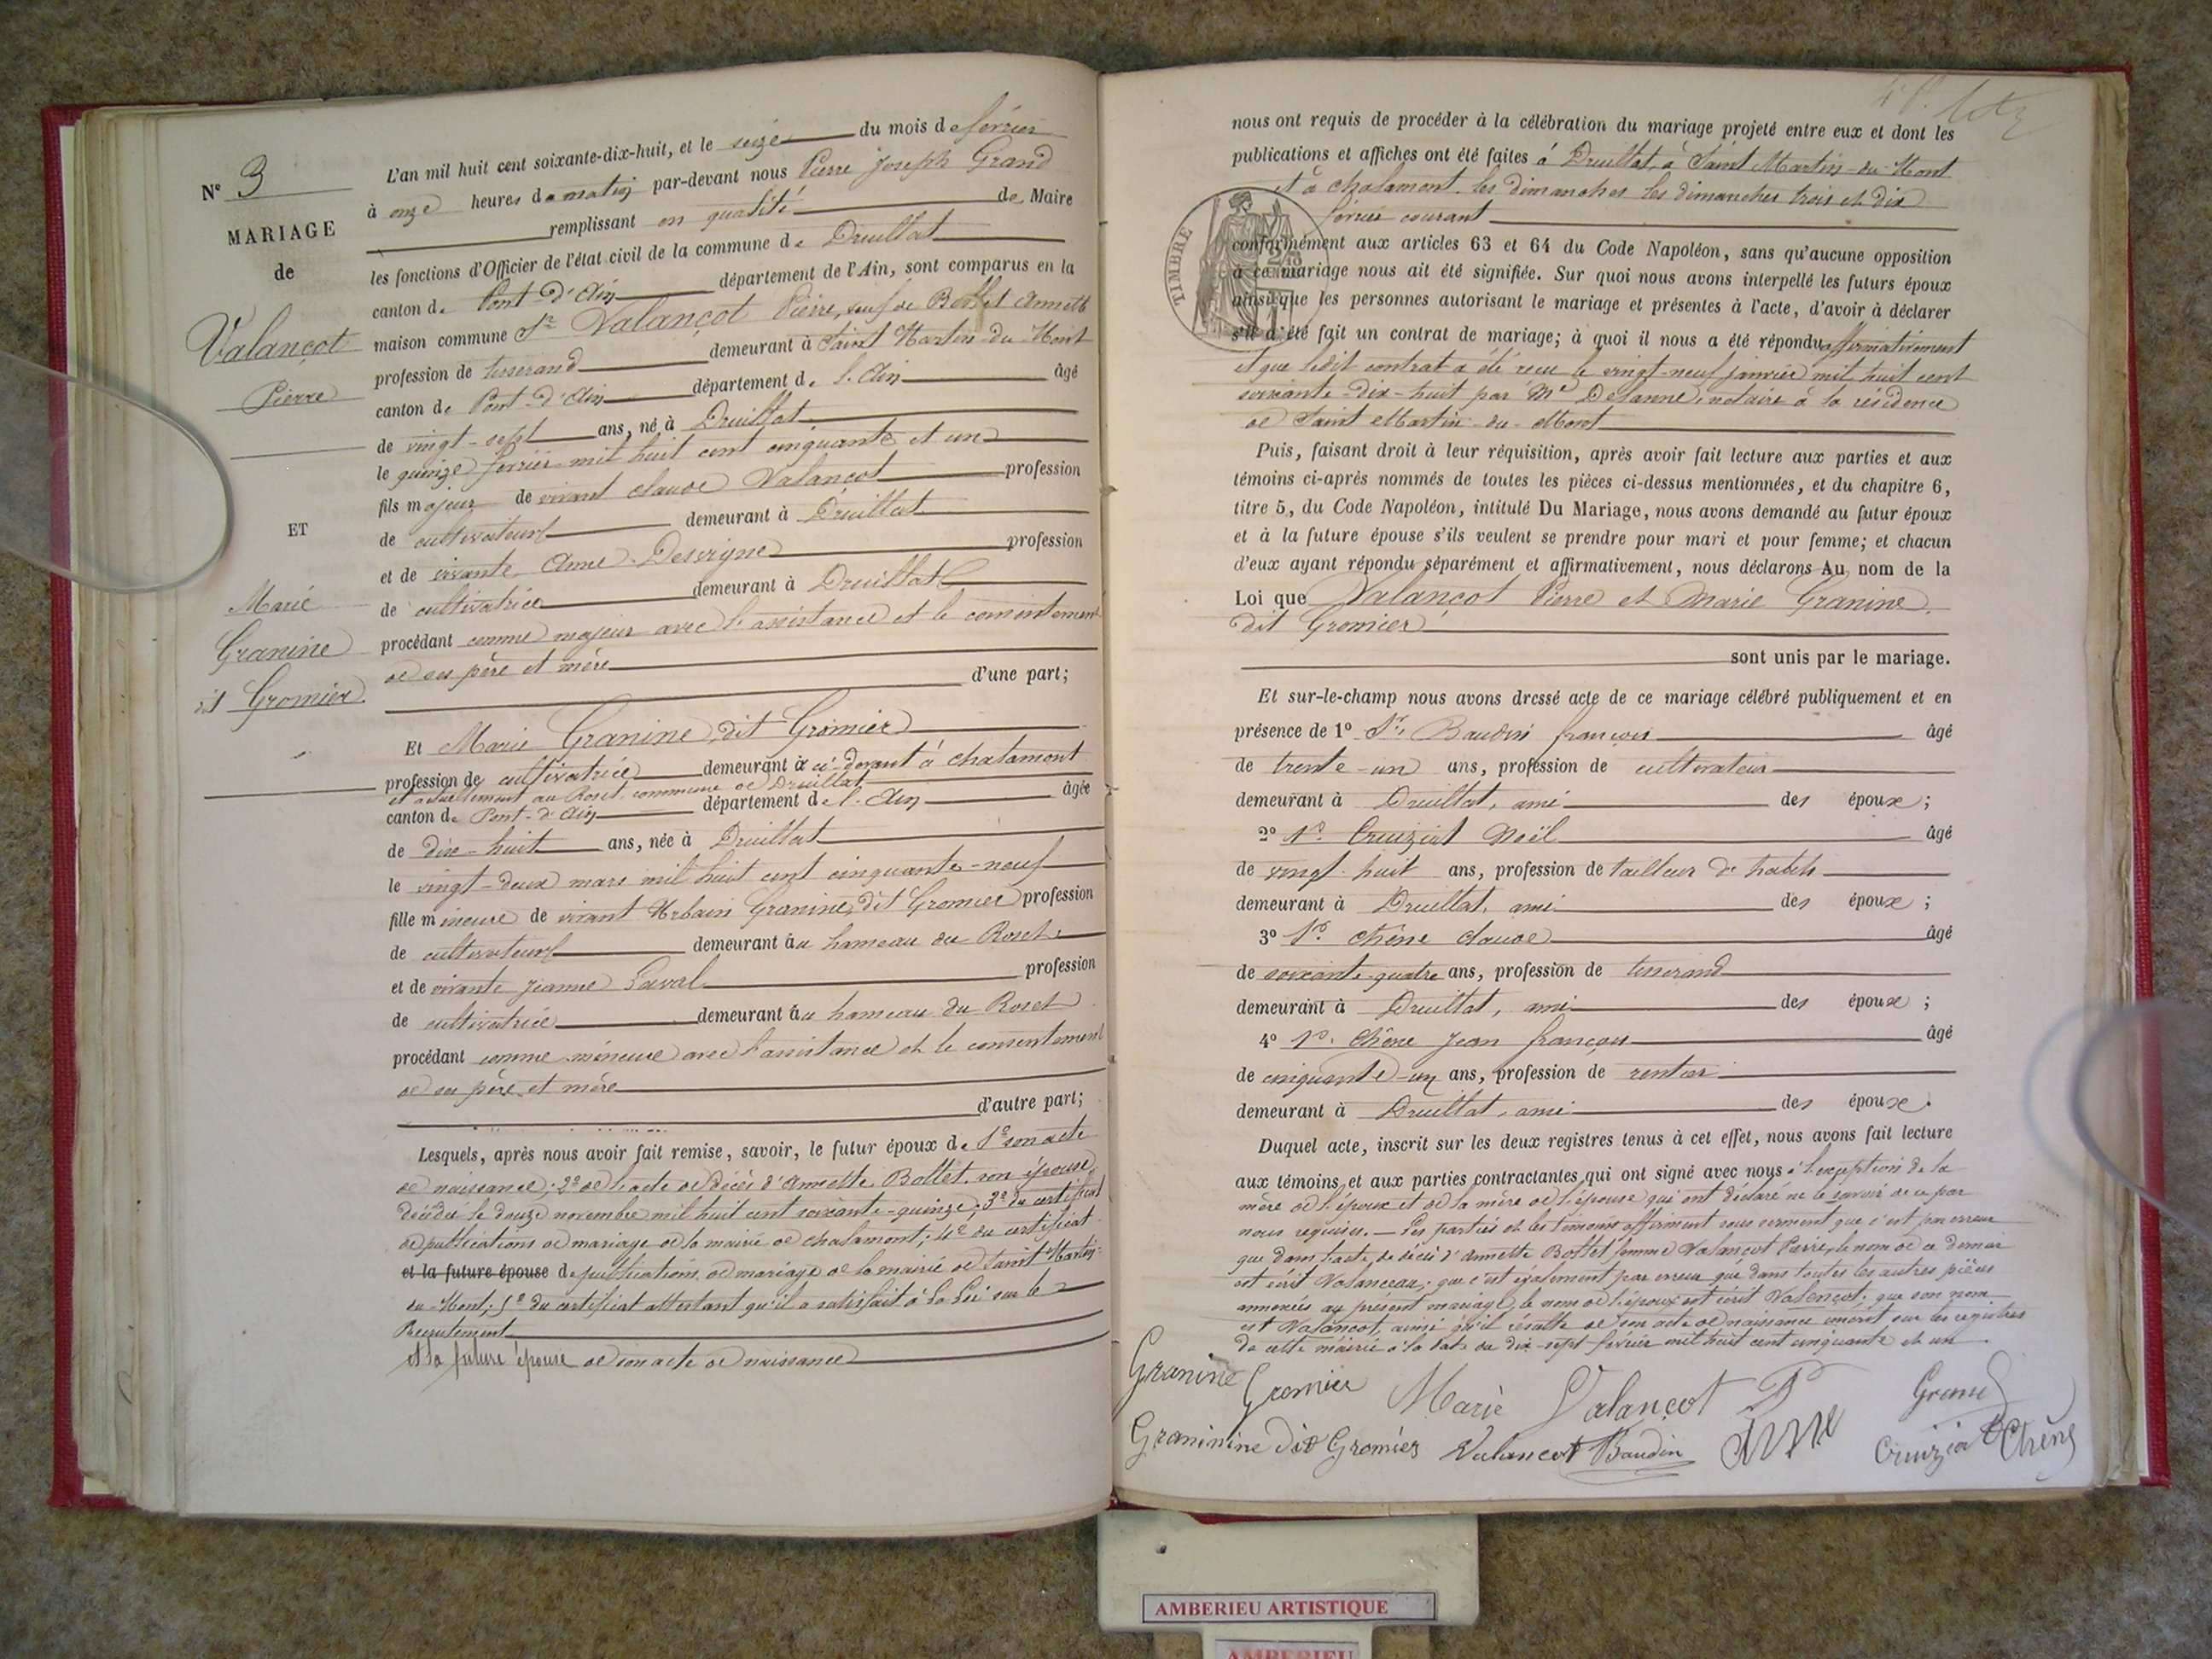 N° 3
MARIAGE
de
Valançot
Pierre
ET
Marie
Granine
dit Gromier.
L'an mil huit cent soixante-dix-huit, et le seize du mois de février
à onze heures du matin par-devant nous Pierre Joseph Grand
remplissant en qualité de Maire
les fonctions d'Officier de l'état civil de la commune de Druillat
canton de Pont-d'Ain département de l'Ain, sont comparus en la
maison commune Sr Valançot Pierre, veuf de Bollet Annette
profession de tisserand demeurant à Saint Martin-du-Mont
canton de Pont-d'Ain département de l'Ain âgé
de vingt-sept ans, né à Druillat
le quinze février mil huit cent cinquante et un
fils majeur de vivant Claude Valançot profession
de cultivateur demeurant à Druillat
et de vivante Anne Desvigne profession
de cultivatrice demeurant à Druillat
procédant comme majeur avec l'assistance et le consentement
de ses père et mère
d'une part;
Et Marie Granine, dit Gromier
profession de cultivatrice demeurant à ci-devant à Chalamont
et actuellement au Roset, commune de Druillat
canton de Pont-d'Ain département de l'Ain âgée
de dix-huit ans, née à Druillat
le vingt-deux mars mil huit cent cinquante-neuf
fille mineure de vivant Urbain Granine, dit Gromier profession
de cultivateur demeurant au hameau du Roset
et de vivante Jeanne Laval profession
de cultivatrice demeurant au hameau du Roset
procédant comme mineure avec l'assistance et le consentement
de ses père et mère
d'autre part;
Lesquels, après nous avoir fait remise, savoir, le futur époux de 1° son acte
de naissance; 2° de l'acte de décès d'Annette Bollet, son épouse,
décédée le douze novembre mil huit cent soixante-quinze; 3° du certificat
de publications de mariage de la mairie de Chalamont; 4° du certificat
et la future épouse de publications de mariage de la mairie de Saint Martin-
du-Mont; 5° du certificat attestant qu'il a satisfait à la Loi sur le
Recrutement
et la future épouse de son acte de naissance
nous ont requis de procéder à la célébration du mariage projeté entre eux et dont les
publications et affiches ont été faites à Druillat, à Saint Martin-du-Mont
et à Chalamont, les dimanches les dimanches trois et dix
février courant
TIMBRE
conformément aux articles 63 et 64 du Code Napoléon, sans qu'aucune opposition
à ce mariage nous ait été signifiée. Sur quoi nous avons interpellé les futurs époux
ainsi que les personnes autorisant le mariage et présentes à l'acte, d'avoir à déclarer
s'il a été fait un contrat de mariage; à quoi il nous a été répondu affirmativement
et que ledit contrat a été reçu le vingt-neuf janvier mil huit cent
soixante-dix-huit par Me Delanne, notaire à la résidence
de Saint Martin-du-Mont
Puis, faisant droit à leur réquisition, après avoir fait lecture aux parties et aux
témoins ci-après nommés de toutes les pièces ci-dessus mentionnées, et du chapitre 6,
titre 5, du Code Napoléon, intitulé Du Mariage, nous avons demandé au futur époux
et à la future épouse s'ils veulent se prendre pour mari et pour femme; et chacun
d'eux ayant répondu séparément et affirmativement, nous déclarons Au nom de la
Loi que Valançot Pierre et Marie Granine,
dit Gromier
sont unis par le mariage.
Et sur-le-champ nous avons dressé acte de ce mariage célébré publiquement et en
présence de 1° Sr. Baudin françois âgé
de trente-un ans, profession de cultivateur
demeurant à Druillat, ami des époux;
2° Sr. Cruiziat Noël âgé
de vingt-huit ans, profession de tailleur d'habits
demeurant à Druillat, ami des époux;
3° Sr. Chêne Claude âgé
de soixante-quatre ans, profession de tisserand
demeurant à Druillat, ami des époux;
4° Sr. Chêne Jean françois âgé
de cinquante-un ans, profession de rentier
demeurant à Druillat, ami des époux.
Duquel acte, inscrit sur les deux registres tenus à cet effet, nous avons fait lecture
aux témoins et aux parties contractantes qui ont signé avec nous à l'exception de la
mère de l'époux et de la mère de l'épouse qui ont déclaré ne le savoir de ce par
nous requises. — Les parties et les témoins affirment sous serment que c'est par erreur
que dans l'acte de décès d'Annette Bollet femme Valançot Pierre, le nom de ce dernier
est écrit Valanceau; que c'est également par erreur que dans toutes les autres pièces
annexées au présent mariage, le nom de l'époux est écrit Valençot; que son nom
est Valançot, ainsi qu'il résulte de son acte de naissance inscrit sur les registres
de cette mairie à la date du dix-sept février mil huit cent cinquante et un
Granine Gromier Marie Valançot P Grand
Graninine dit Gromier Valancot Baudin Cruiziat Chêne
AMBERIEU ARTISTIQUE
AMBERIEU